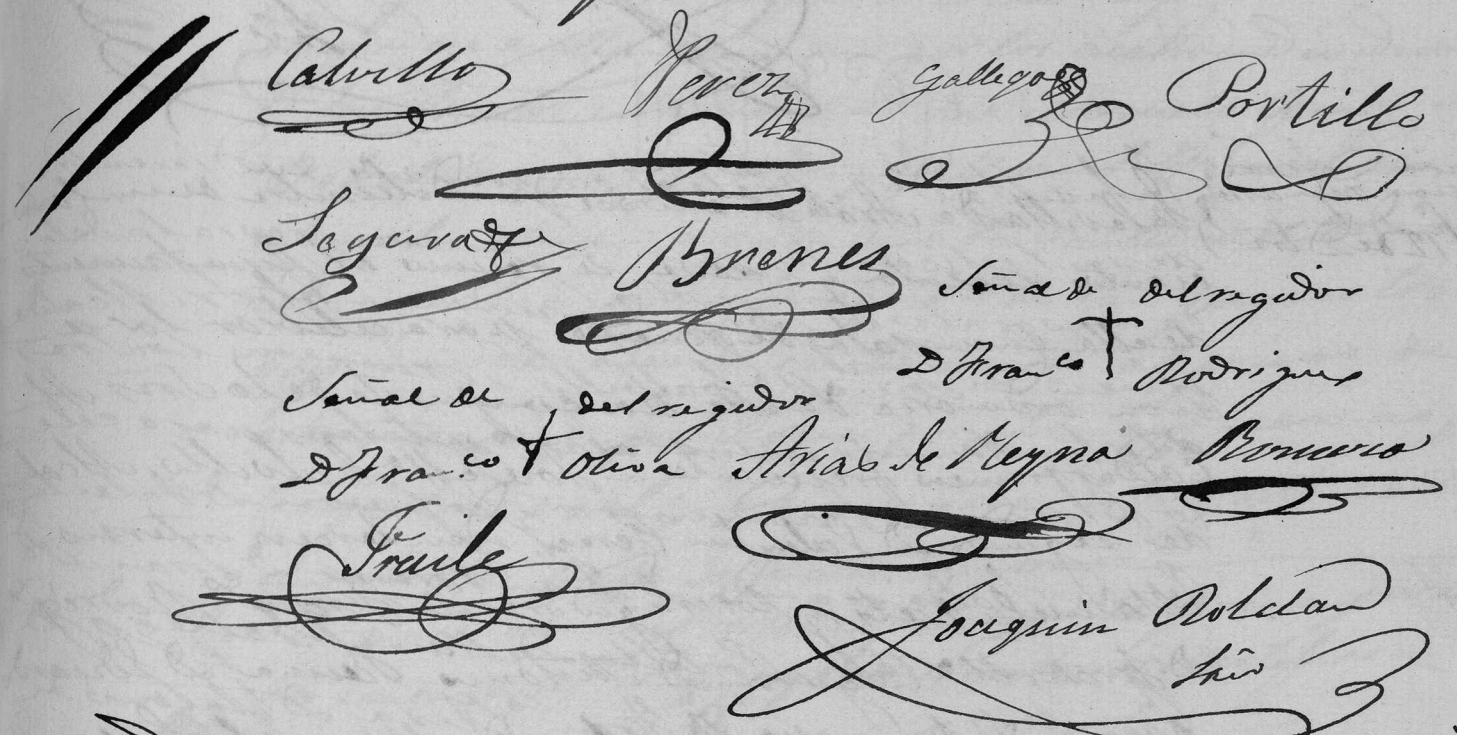 Calvillo Perez Gallegos Portillo
Segura Brenes
Señal de del regidor
D Fran.co + Rodriguez
Señal de del regidor
D Fran.co + Oliva Arias de Reyna Romero
Fraile
Joaquin Roldan
Srio